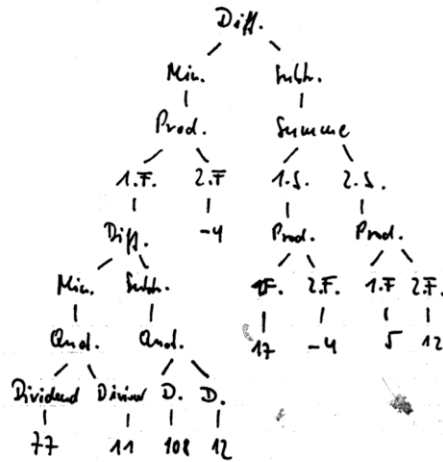 Diff.
Min. Subtr.
Prod. Summe
1.F. 2.F 1.S. 2.S.
Diff. -4 Prod. Prod.
Min. Subtr. 1.F. 2.F. 1.F 2.F.
Quot. Quot. 17 -4 5 12
Dividend Divisor D. D.
77 11 108 12